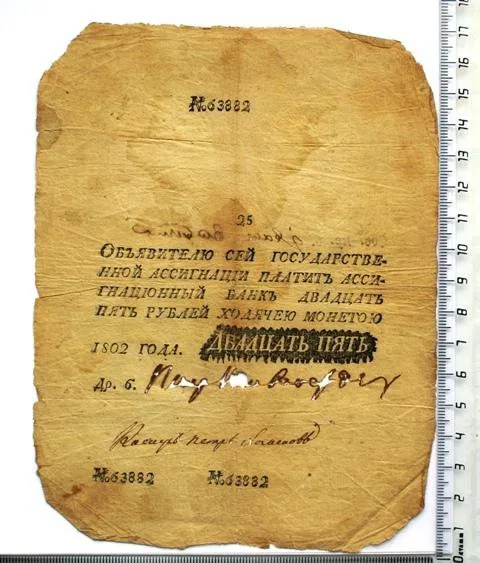 №63882
25
ОБЪЯВИТЕЛЮ СЕЙ ГОСУДАРСТВЕ-
ННОЙ АССИГНАЦІИ ПЛАТИТЪ АССИ-
ГНАЦІОННЫЙ БАНКЪ ДВАДЦАТЬ
ПЯТЬ РУБЛЕЙ ХОДЯЧЕЮ МОНЕТОЮ
1802 ГОДА. ДВАДЦАТЬ ПЯТЬ
Др. 6.
Касиръ петръ
№63882 №63882